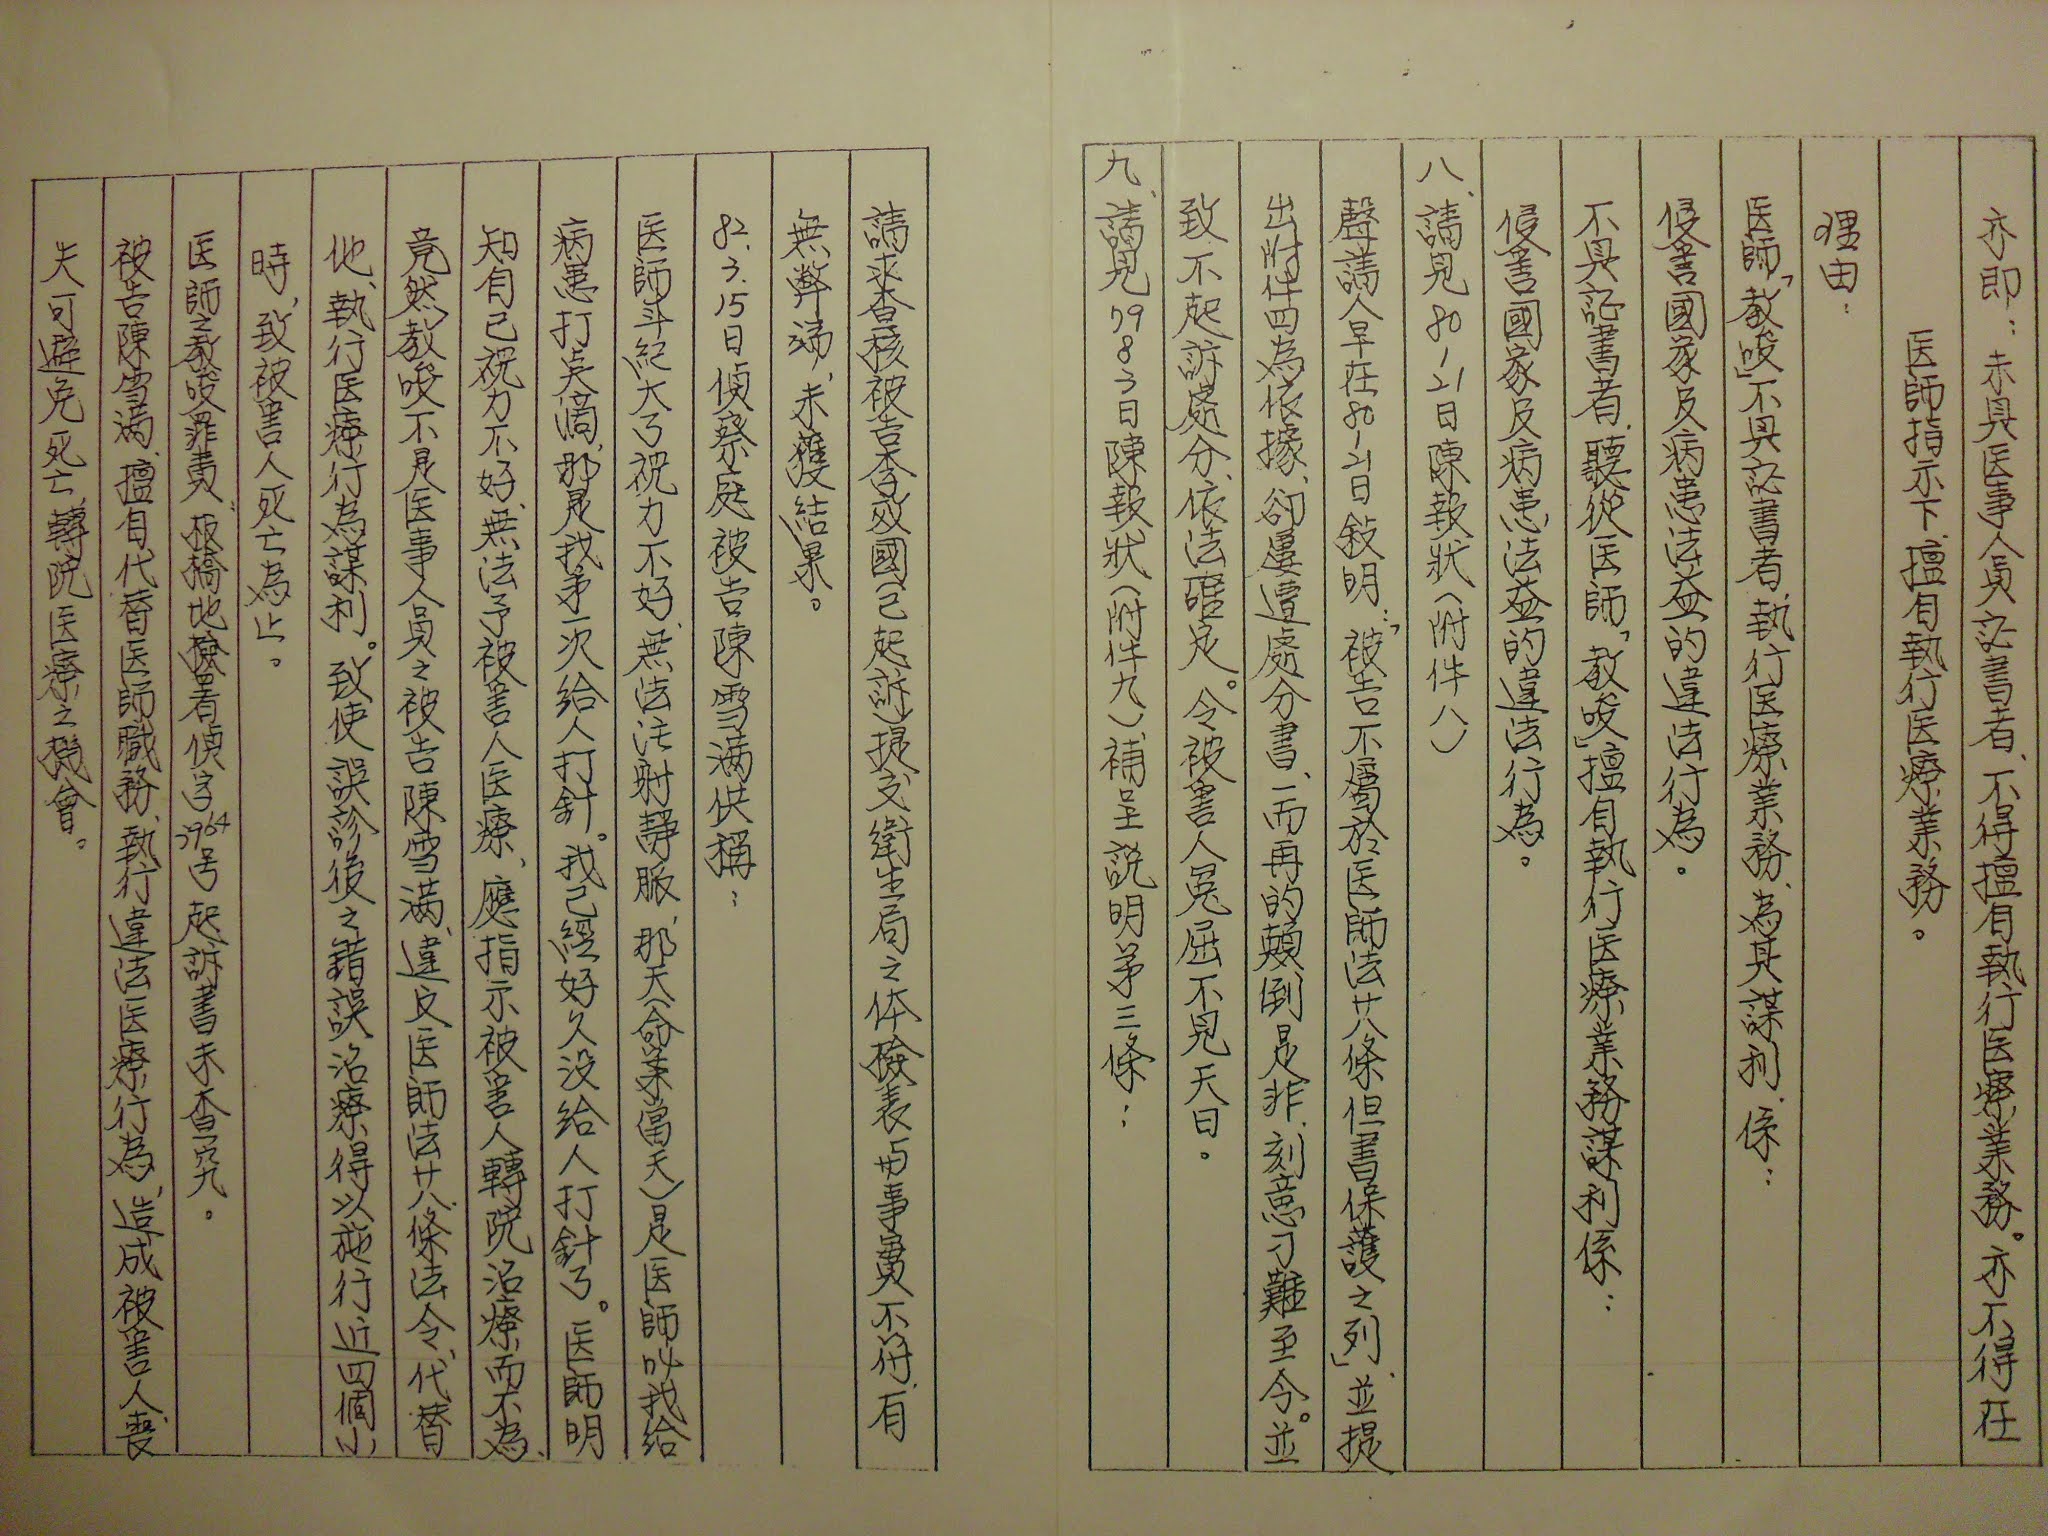 亦即：未具医事人員証書者、不得擅自執行医療業務。亦不得在
医師指示下、擅自執行医療業務。
理由：
医師「教唆」不具証書者、執行医療業務、為其謀利、係：
侵害國家及病患法益的違法行為。
不具証書者、聽從医師「教唆」擅自執行医療業務謀利係：
侵害國家及病患、法益的違法行為。
八、請見80 1 21日陳報狀（附件八）
聲請人早在80 1 21日敍明：「被告不屬於医師法廿八條但書保護之列」並提
出附件四為依據、卻屢遭處分書、一而再的顛倒是非、刻意刁難至今。並
致不起訴處分、依法確定。令被害人冤屈不見天日。
九、請見79 8 3日陳報狀（附件九）、補呈説明第三條：
請求查核被告李致國（已起訴）提交衛生局之体檢表与事實不符、有
無弊端、未獲結果。
82.3.15日偵察庭被告陳雪滿供稱：
医師年紀大了視力不好、無法注射靜脈、那天（命案當天）是医師叫我給
病患打点滴、那是我第一次給人打針。我已經好久没給人打針了。医師明
知自己視力不好、無法予被害人医療、應指示被害人轉院治療、而不為、
竟然教唆不是医事人員之被告陳雪滿、違反医師法廿八條法令、代替
他、執行医療行為謀利。致使誤診後之錯誤治療得以施行近四個小
時、致被害人死亡為止。
医師之教唆罪責、板橋地檢署偵字3964号起訴書未查究。
被告陳雪滿、擅自代替医師職務、執行違法医療行為、造成被害人喪
失可避免死亡、轉院医療之機會。